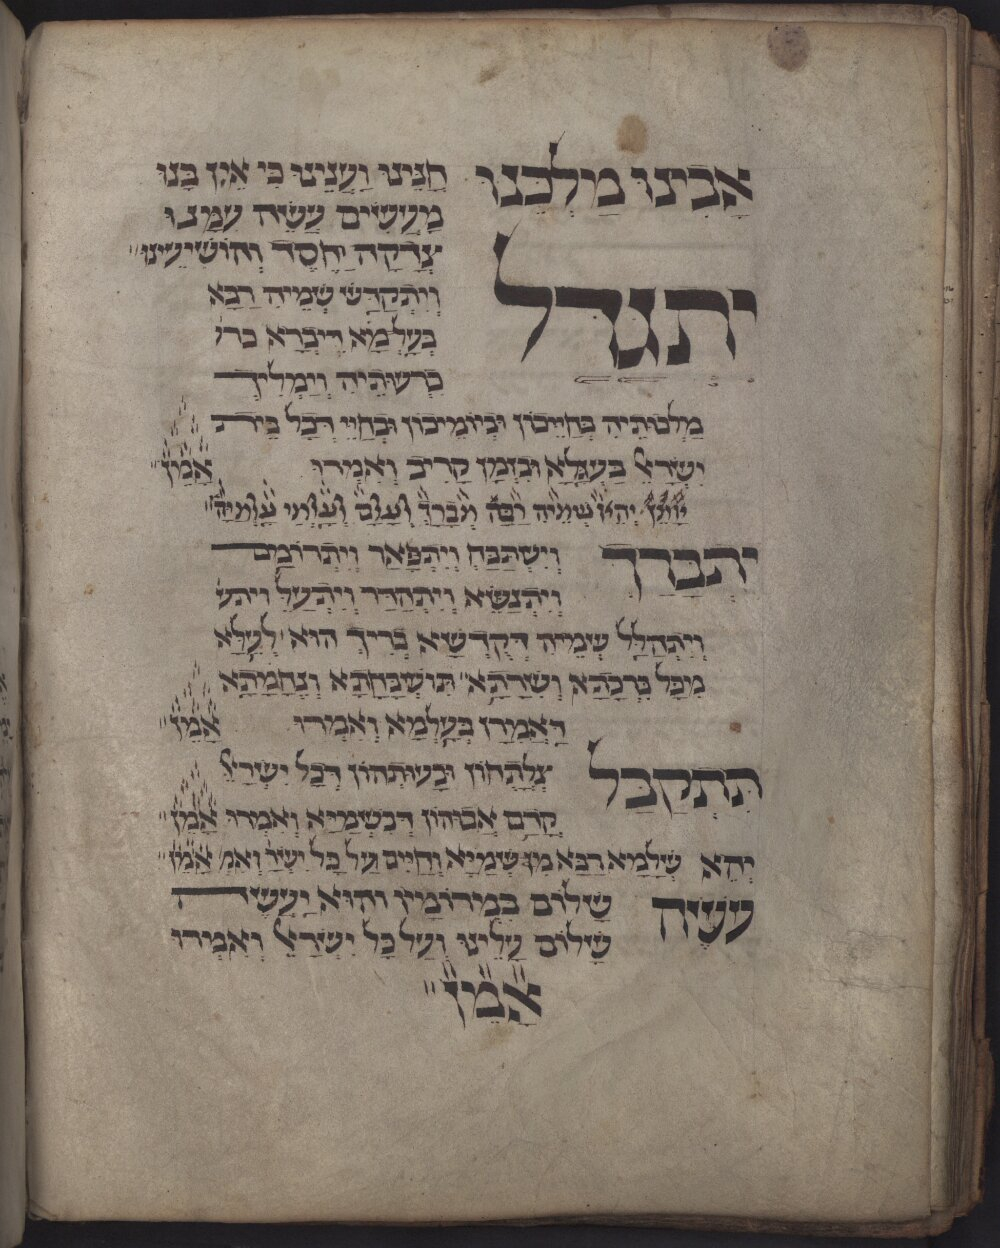 אָבִינוּ מַלְכֵּנוּ חָנֵּינוּ וַעֲנֵינוּ כִּי אֵין בָּנוּ
מַעֲשִׂים עֲשֵׂה עִמָּנוּ
צְדָקָה וָחֶסֶד וְהוֹשִׁיעֵינוּ
יתגדל וְיִתְקַדַּשׁ שְׁמֵיהּ רַבָּא
בְּעָלְמָא דִּיבְרָא כר
כִרְעוּתֵיהּ וְיַמְלִיךְ
מַלְכוּתֵיהּ בְּחַיֵּיכוֹן וּבְיוֹמֵיכוֹן וּבְחַיֵּי דְכָל בֵּית
יִשְׂרָאֵל בַּעֲגָלָא וּבִזְמַן קָרִיב וְאִמְרוּ אָמֵן
אָמֵן יְהֵא שְׁמֵיהּ רַבָּה מְבָרַךְ לְעָלַם וּלְעָלְמֵי עָלְמַיָּא
יִתְבָּרַךְ וְיִשְׁתַּבַּח וְיִתְפָּאַר וְיִתְרוֹמַם
וְיִתְנַשֵּׂא וְיִתְהַדַּר וְיִתְעַלֶּה ויתע
וְיִתְהַלָּל שְׁמֵיהּ דְּקֻדְשָׁא בְּרִיךְ הוּא לְעֵלָּא
מִכָּל בִּרְכָתָא וְשִׁירָתָא תּוּשְׁבְּחָתָא וְנֶחָמָתָא
דַּאֲמִירָן בְּעָלְמָא וְאִמְרוּ אָמֵן
תִּתְקַבַּל צְלָתְהוֹן וּבָעוּתְהוֹן דְּכָל יִשְׂרָאֵל
קֳדָם אֲבוּהוֹן דְּבִשְׁמַיָּא וְאִמְרוּ אָמֵן
יְהֵא שְׁלָמָא רַבָּא מִן שְׁמַיָּא וְחַיִּים עַל כָּל יִשְׂר וְאִמ אָמֵן
עֹשֶׂה שָׁלוֹם בִּמְרוֹמָיו וְהוּא יַעֲשֶׂה
שָׁלוֹם עָלֵינוּ וְעַל כָּל יִשְׂרָאֵל וְאִמְרוּ
אָמֵן